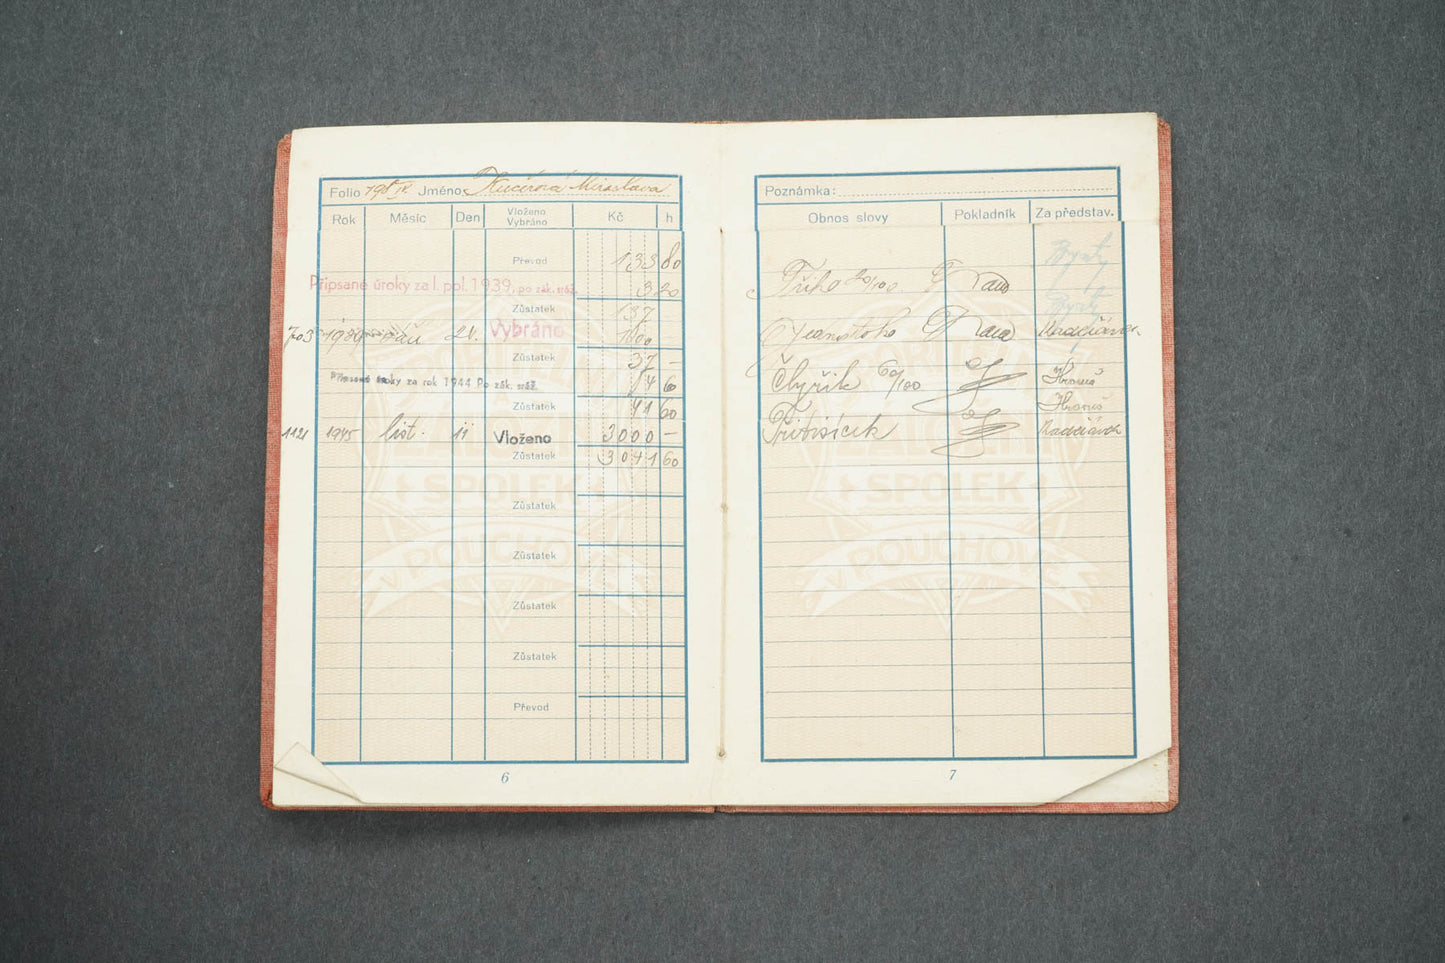 Folio Jméno Kučírová Miroslava
Rok Měsíc Den Vloženo Vybráno Kč h
Převod 133 80
Připsané úroky za I. pol. 1939, po zák. sráž. 3 20
Zůstatek 137
703 1939 září 21. Vybráno 100
Zůstatek 37 –
Připsané úroky za rok 1944 Po zák. sráž. 4 60
Zůstatek 41 60
1121 1945 list. 11 Vloženo 3000 –
Zůstatek 3041 60
Zůstatek
Zůstatek
Zůstatek
Zůstatek
Převod
SPOŘITELNÍ
A
ZÁLOŽNÍ
SPOLEK
V POUCHOVĚ
6
Poznámka:
Obnos slovy Pokladník Za představ.
Třiho 20/100
Jednosto
Čtyřik 60/100
Třitisícek
ZÁLOŽNÍ
SPOLEK
V POUCHOVĚ
7